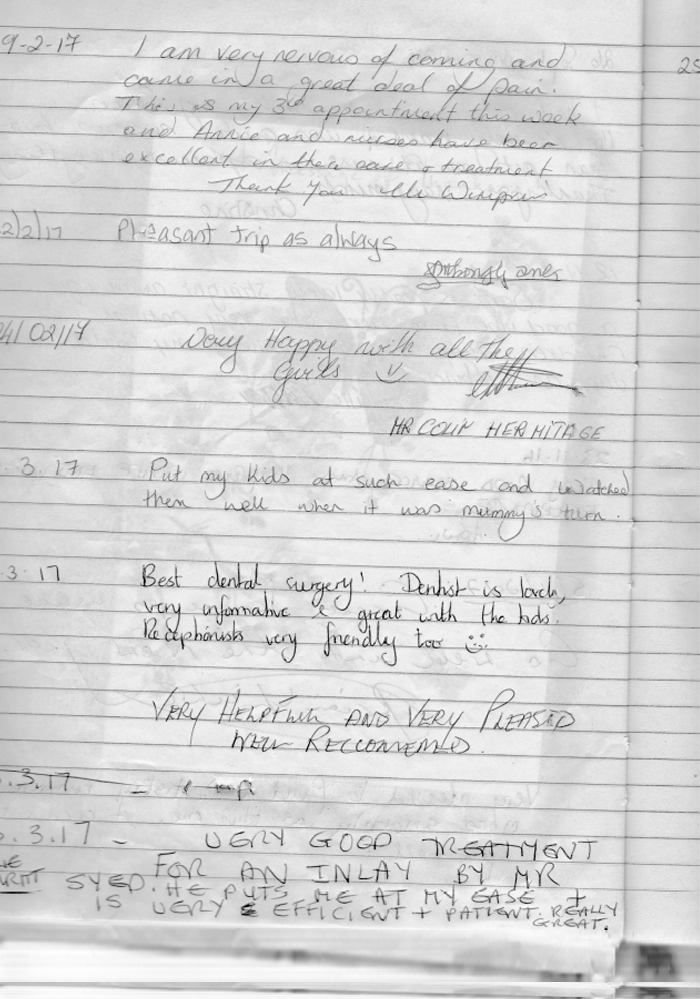 9-2-17 I am very nervous of coming and
came in a great deal of pain.
This is my 3rd appointment this week
and Annie and nurses have been
excellent in their care & treatment
Thank you
2/2/17 Pleasant trip as always
4/02/17 Very Happy with all the
Girls
MR COLIN HERMITAGE
3.17 Put my kids at such ease and watched
them well when it was mummy's turn.
3.17 Best dental surgery! Dentist is lovely,
very informative & great with the kids.
Receptionists very friendly too
VERY HELPFULL AND VERY PLEASED
WELL RECCOMENED.
.3.17
.3.17 - VERY GOOD TREATMENT
FOR AN INLAY BY MR
SYED. HE PUTS ME AT MY EASE +
IS VERY EFFICIENT + PATIENT. REALLY
GREAT.